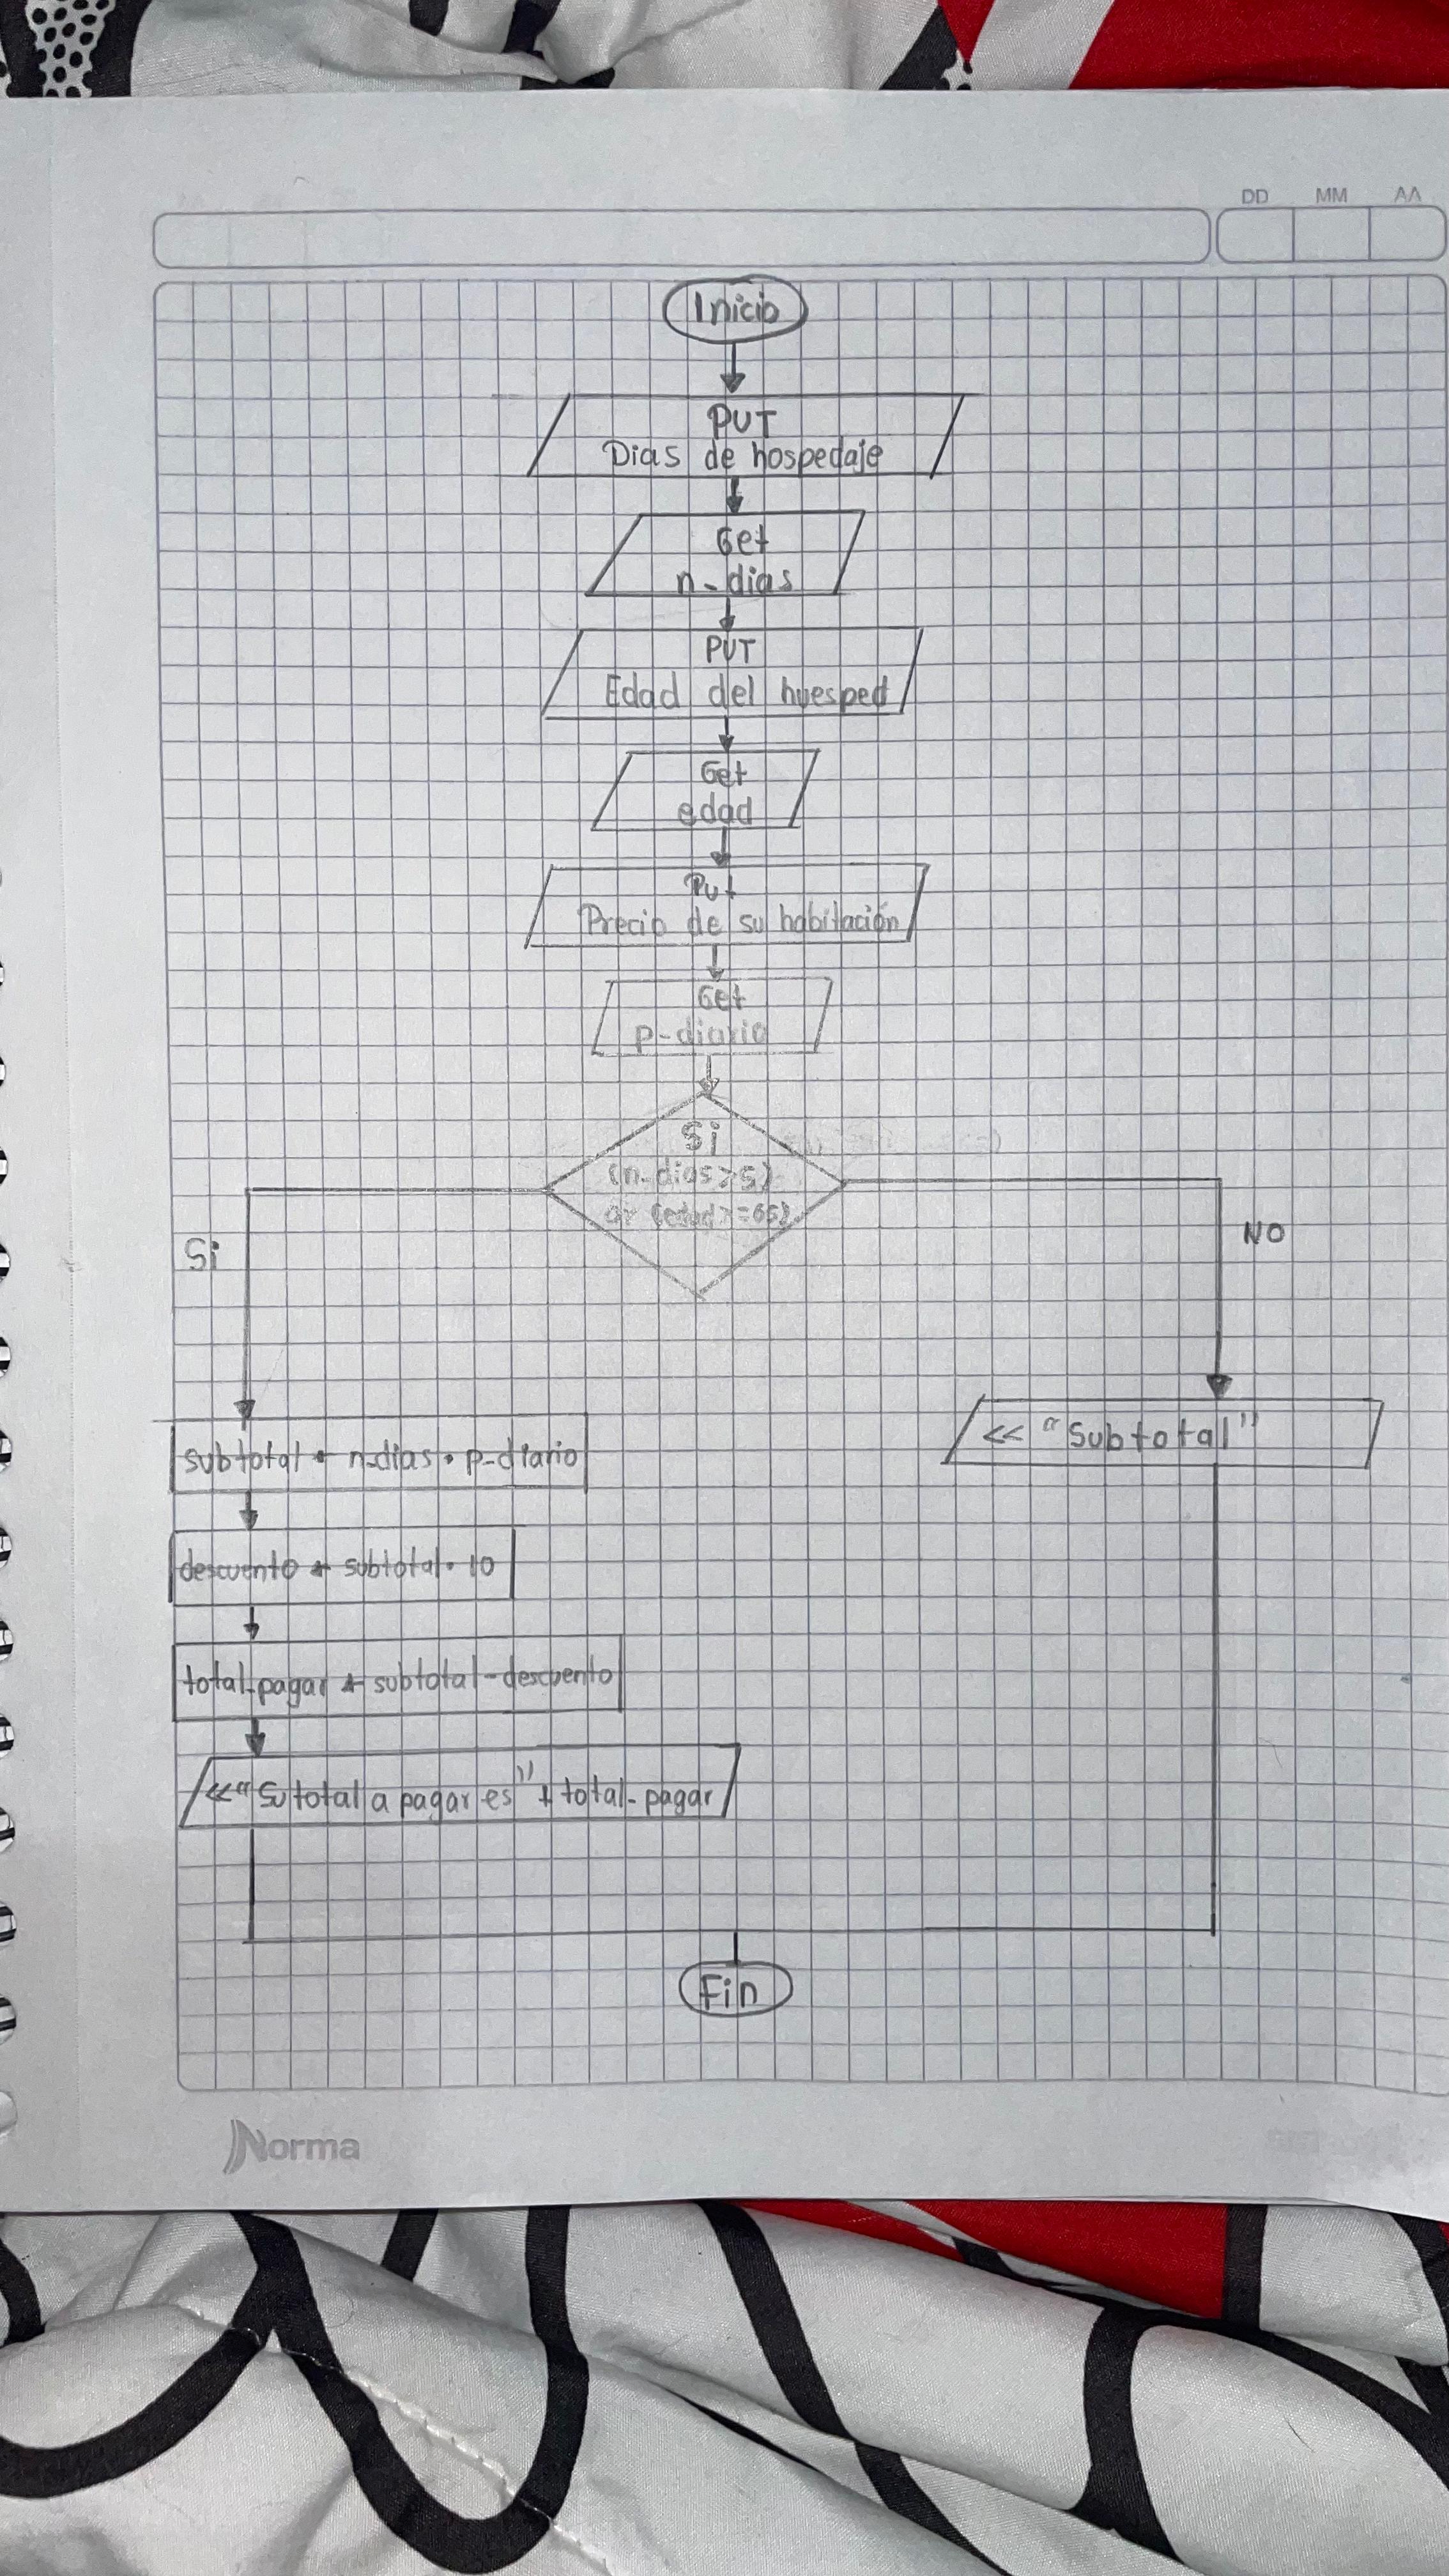 DD MM AA
Inicio
PUT
Dias de hospedaje
Get
n-dias
PUT
Edad del huesped
Get
edad
Put
Precio de su habitación
Get
p-diario
Si
(n-dias>5)
or (edad>=65)
Si
NO
subtotal ← n-dias • p-diario
<< "Subtotal"
descuento ← subtotal • 10
total-pagar ← subtotal - descuento
<<"Su total a pagar es" + total-pagar
Fin
Norma